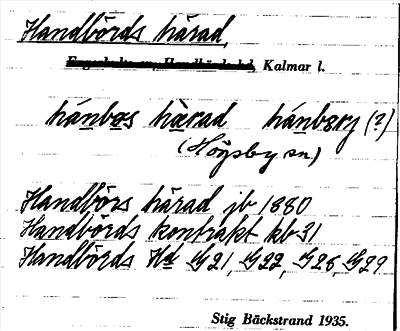 Handbörds härad,
Kalmar l.
hánbos härad hánbøry (?)
(Högsby sn)
Handbörs härad jb 1880
Handbörds kontrakt kb 31
Handbörds Hd G21, G22, G28, G29
Stig Bäckstrand 1935.